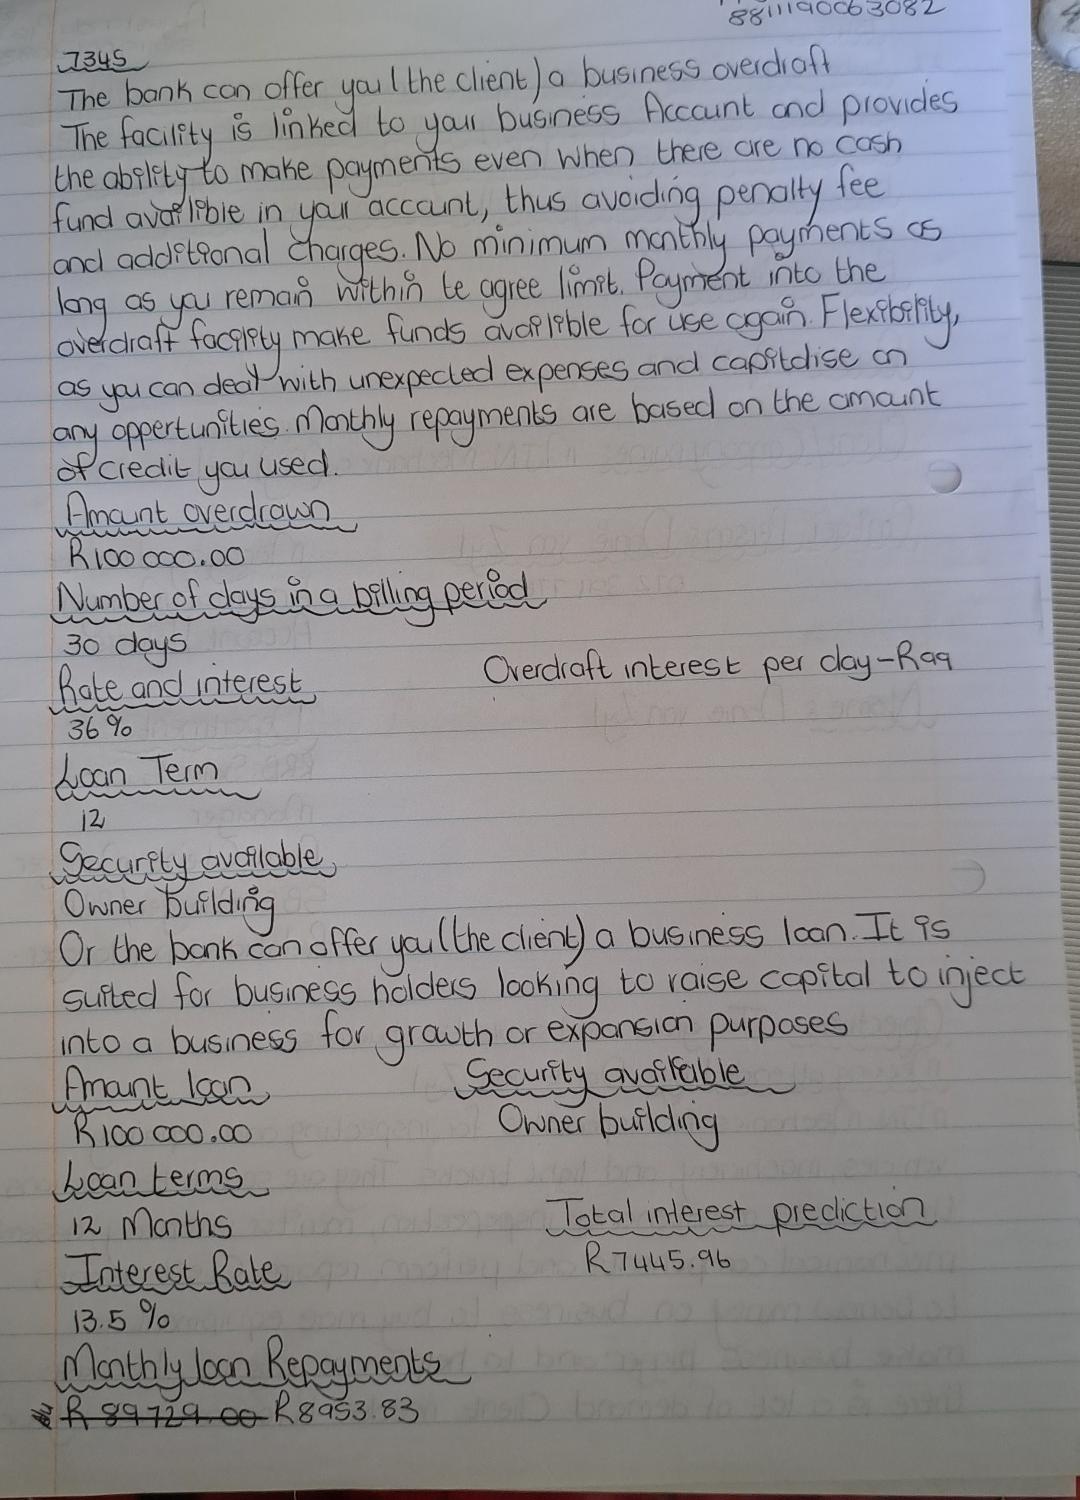 8811190063082
7345
The bank can offer you (the client) a business overdraft
The facility is linked to your business Account and provides
the ability to make payments even when there are no cash
fund availible in your account, thus avoiding penalty fee
and additional charges. No minimum monthly payments as
long as you remain within te agree limit. Payment into the
overdraft facility make funds availible for use again. Flexibility,
as you can deal with unexpected expenses and capitalise on
any oppertunities. Monthly repayments are based on the amount
of credit you used.
Amount overdrawn
R100 000.00
Number of days in a billing period
30 days
Overdraft interest per day-R99
Rate and interest
36%
Loan Term
12
Security available
Owner building
Or the bank can offer you (the client) a business loan. It is
suited for business holders looking to raise capital to inject
into a business for growth or expansion purposes
Amount loan Security available
R100 000.00 Owner building
Loan terms
12 Months Total interest prediction
Interest Rate R7445.96
13.5%
Monthly loan Repayments
R 89729.00 R8953.83